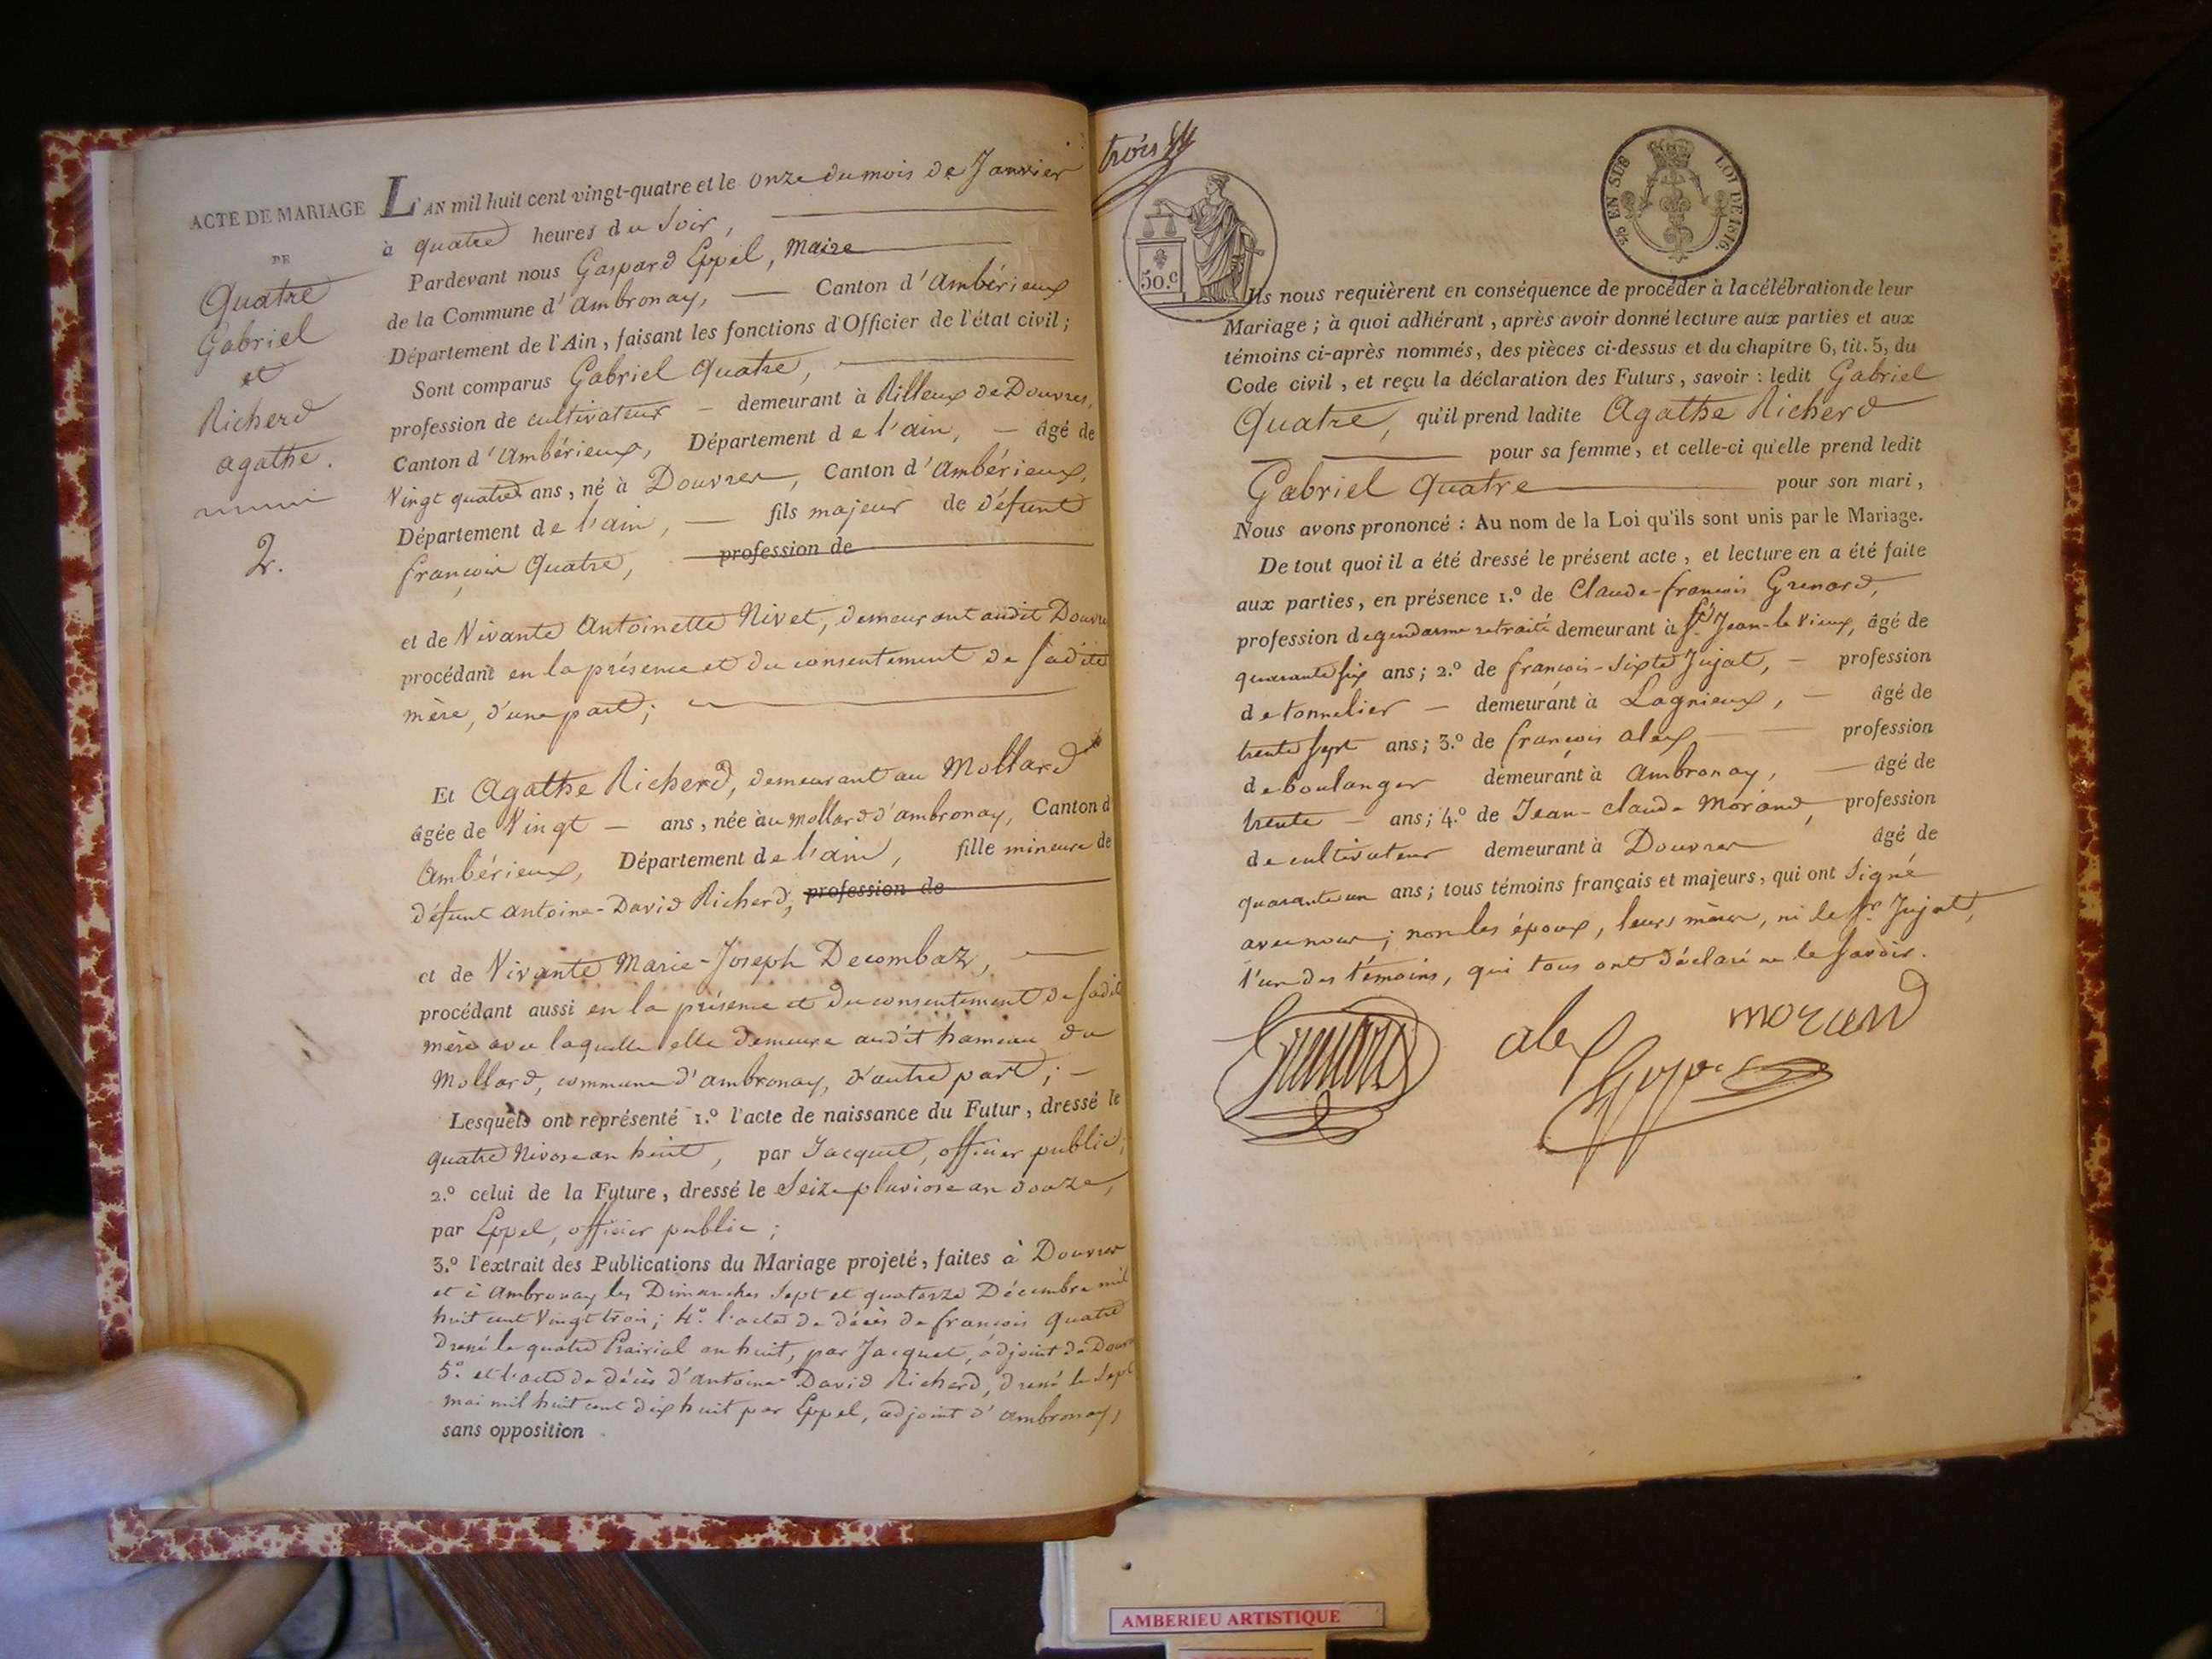 ACTE DE MARIAGE
DE
Quatre
Gabriel
et
Richerd
agathe.
2.
L'AN mil huit cent vingt-quatre et le onze du mois de Janvier
à quatre heures du Soir,
Pardevant nous Gaspard Eppel, Maire
de la Commune d'Ambronay, — Canton d'Ambérieux
Département de l'Ain, faisant les fonctions d'Officier de l'état civil;
Sont comparus Gabriel Quatre,
profession de cultivateur — demeurant à Rilleux de Douvres,
Canton d'Ambérieux, Département de l'ain, — âgé de
Vingt quatre ans, né à Douvres, Canton d'Ambérieux,
Département de l'ain, — fils majeur de défunt
françois Quatre, profession de
et de Vivante Antoinette Nivet, demeurant audit Douvres
procédant en la présence et du consentement de sadite
mère, d'une part;
Et Agathe Richerd, demeurant au Mollard
âgée de Vingt — ans, née au mollard d'ambronay, Canton d'
Ambérieux, Département de l'ain, fille mineure de
défunt antoine-David Richerd, profession de
et de Vivante Marie-Joseph Decombaz,
procédant aussi en la présence et du consentement de sadite
mère avec laquelle elle demeure audit hameau du
Mollard, commune d'ambronay, d'autre part; —
Lesquels ont représenté 1.º l'acte de naissance du Futur, dressé le
quatre Nivose an huit, par Jacquet, officier public;
2.º celui de la Future, dressé le Seize pluviose an douze,
par Eppel, officier public;
3.º l'extrait des Publications du Mariage projeté, faites à Douvres
et à Ambronay les Dimanches Sept et quatorze Décembre mil
huit cent Vingt trois; 4.º l'acte de décès de françois Quatre
dressé le quatre Prairial an huit, par Jacquet, adjoint de Douvres
5.º et l'acte de décès d'antoine-David Richerd, dressé le Sept
mai mil huit cent dix huit par Eppel, adjoint d'ambronay,
sans opposition
trois
50.c
EN SUS
LOI DE 1816.
Ils nous requièrent en conséquence de procéder à la célébration de leur
Mariage; à quoi adhérant, après avoir donné lecture aux parties et aux
témoins ci-après nommés, des pièces ci-dessus et du chapitre 6, tit. 5, du
Code civil, et reçu la déclaration des Futurs, savoir: ledit Gabriel
Quatre, qu'il prend ladite Agathe Richerd
pour sa femme, et celle-ci qu'elle prend ledit
Gabriel Quatre pour son mari,
Nous avons prononcé: Au nom de la Loi qu'ils sont unis par le Mariage.
De tout quoi il a été dressé le présent acte, et lecture en a été faite
aux parties, en présence 1.º de Claude-françois Grenard,
profession de gendarme retraité demeurant à St Jean-le Vieux, âgé de
quarante six ans; 2.º de françois-Sixte Jujat, — profession
de tonnelier — demeurant à Lagnieux, — âgé de
trente sept ans; 3.º de françois alex — profession
de boulanger demeurant à Ambronay, — âgé de
trente — ans; 4.º de Jean-claude Morand, profession
de cultivateur demeurant à Douvres âgé de
quarante un ans; tous témoins français et majeurs, qui ont Signé
avec nous; non les époux, leurs mères, ni le Sr. Jujat,
l'un des témoins, qui tous ont déclaré ne le savoir.
Grenard
alex
morand
AMBERIEU ARTISTIQUE